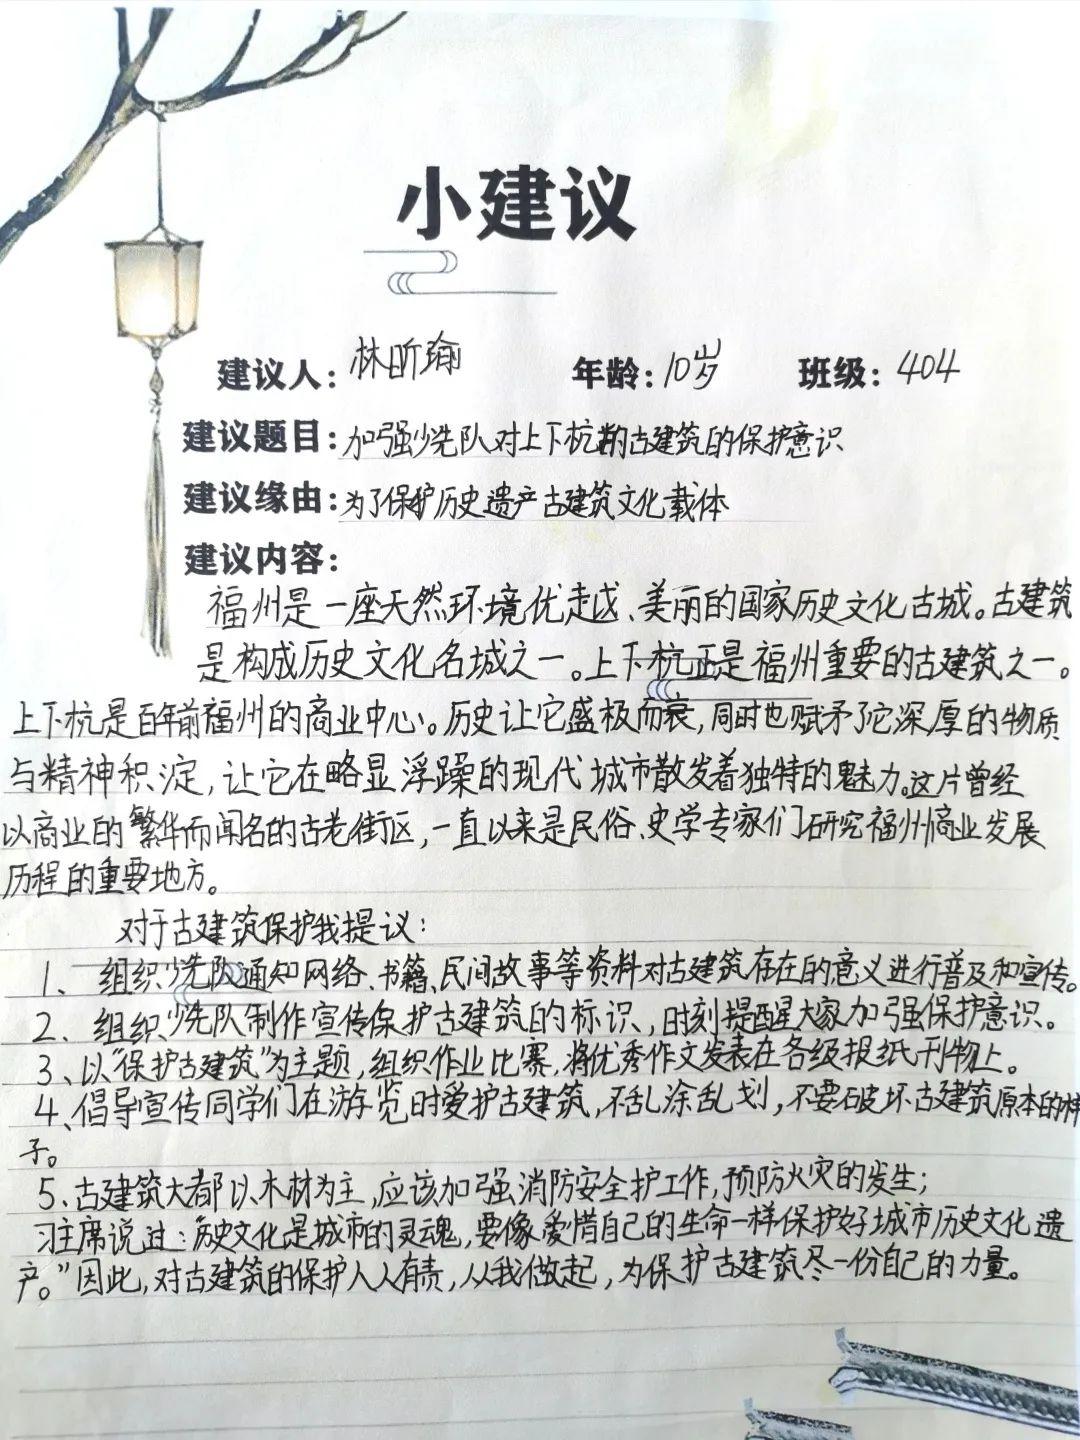 小建议
建议人：林昕瑜 年龄：10岁 班级：404
建议题目：加强少先队对上下杭的古建筑的保护意识
建议缘由：为了保护历史遗产古建筑文化载体
建议内容：
福州是一座天然环境优越、美丽的国家历史文化古城。古建筑
是构成历史文化名城之一。上下杭正是福州重要的古建筑之一。
上下杭是百年前福州的商业中心。历史让它盛极而衰，同时也赋予了它深厚的物质
与精神积淀，让它在略显浮躁的现代城市散发着独特的魅力。这片曾经
以商业的繁华而闻名的古老街区，一直以来是民俗、史学专家们研究福州商业发展
历程的重要地方。
对于古建筑保护我提议：
1、组织少先队通知网络、书籍、民间故事等资料对古建筑存在的意义进行普及和宣传。
2、组织少先队制作宣传保护古建筑的标识，时刻提醒大家加强保护意识。
3、以“保护古建筑”为主题，组织作业比赛，将优秀作文发表在各级报纸刊物上。
4、倡导宣传同学们在游览时爱护古建筑，不乱涂乱划，不要破坏古建筑原本的样
子。
5、古建筑大都以木材为主，应该加强消防安全护工作，预防火灾的发生；
习主席说过：“历史文化是城市的灵魂，要像爱惜自己的生命一样保护好城市历史文化遗
产。”因此，对古建筑的保护人人有责，从我做起，为保护古建筑尽一份自己的力量。